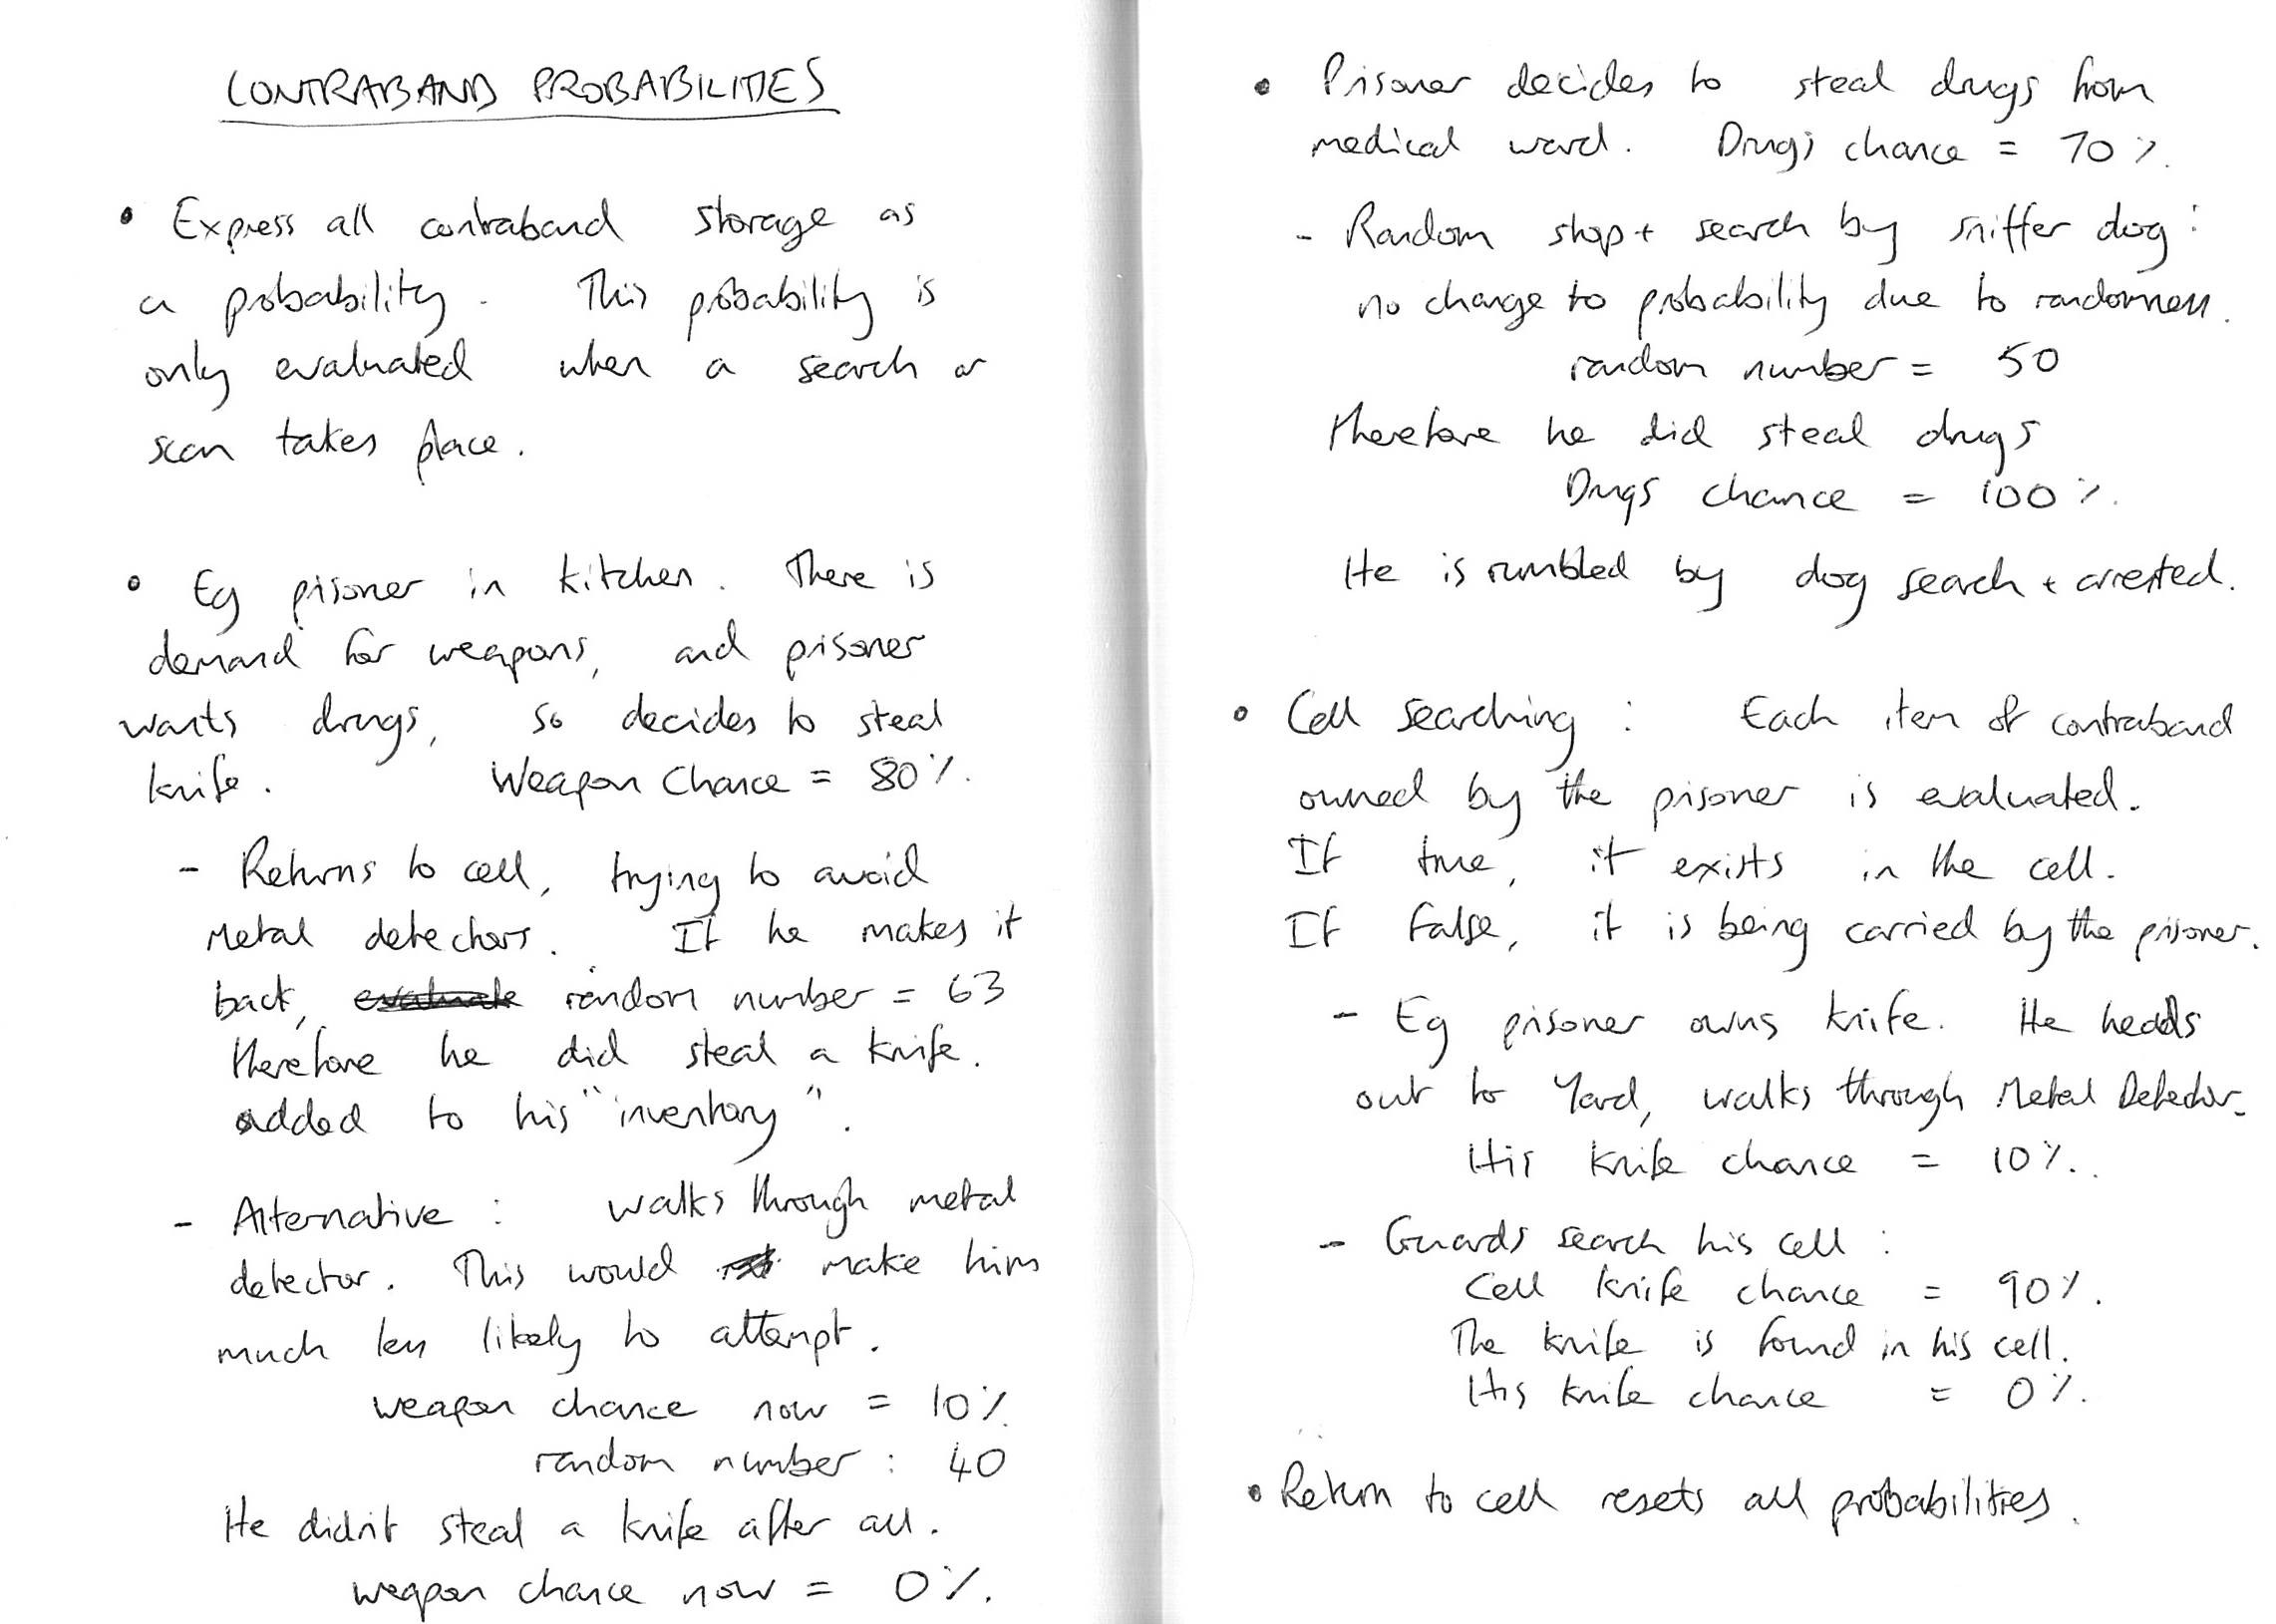 CONTRABAND PROBABILITIES
• Express all contraband storage as
a probability. This probability is
only evaluated when a search or
scan takes place.
• Eg prisoner in kitchen. There is
demand for weapons, and prisoner
wants drugs, so decides to steal
knife. Weapon Chance = 80%.
- Returns to cell, trying to avoid
Metal detectors. If he makes it
back, evaluate random number = 63
therefore he did steal a knife.
added to his "inventory".
- Alternative : walks through metal
detector. This would make him
much less likely to attempt.
weapon chance now = 10%
random number : 40
He didn't steal a knife after all.
weapon chance now = 0%.
• Prisoner decides to steal drugs from
medical ward. Drugs chance = 70%.
- Random stop + search by sniffer dog :
no change to probability due to randomness.
random number = 50
therefore he did steal drugs
Drugs chance = 100%.
He is rumbled by dog search + arrested.
• Cell searching : Each item of contraband
owned by the prisoner is evaluated.
If true, it exists in the cell.
If false, it is being carried by the prisoner.
- Eg prisoner owns knife. He heads
out to Yard, walks through Metal Detector.
His knife chance = 10%.
- Guards search his cell :
Cell knife chance = 90%.
The knife is found in his cell.
His knife chance = 0%.
• Return to cell resets all probabilities.